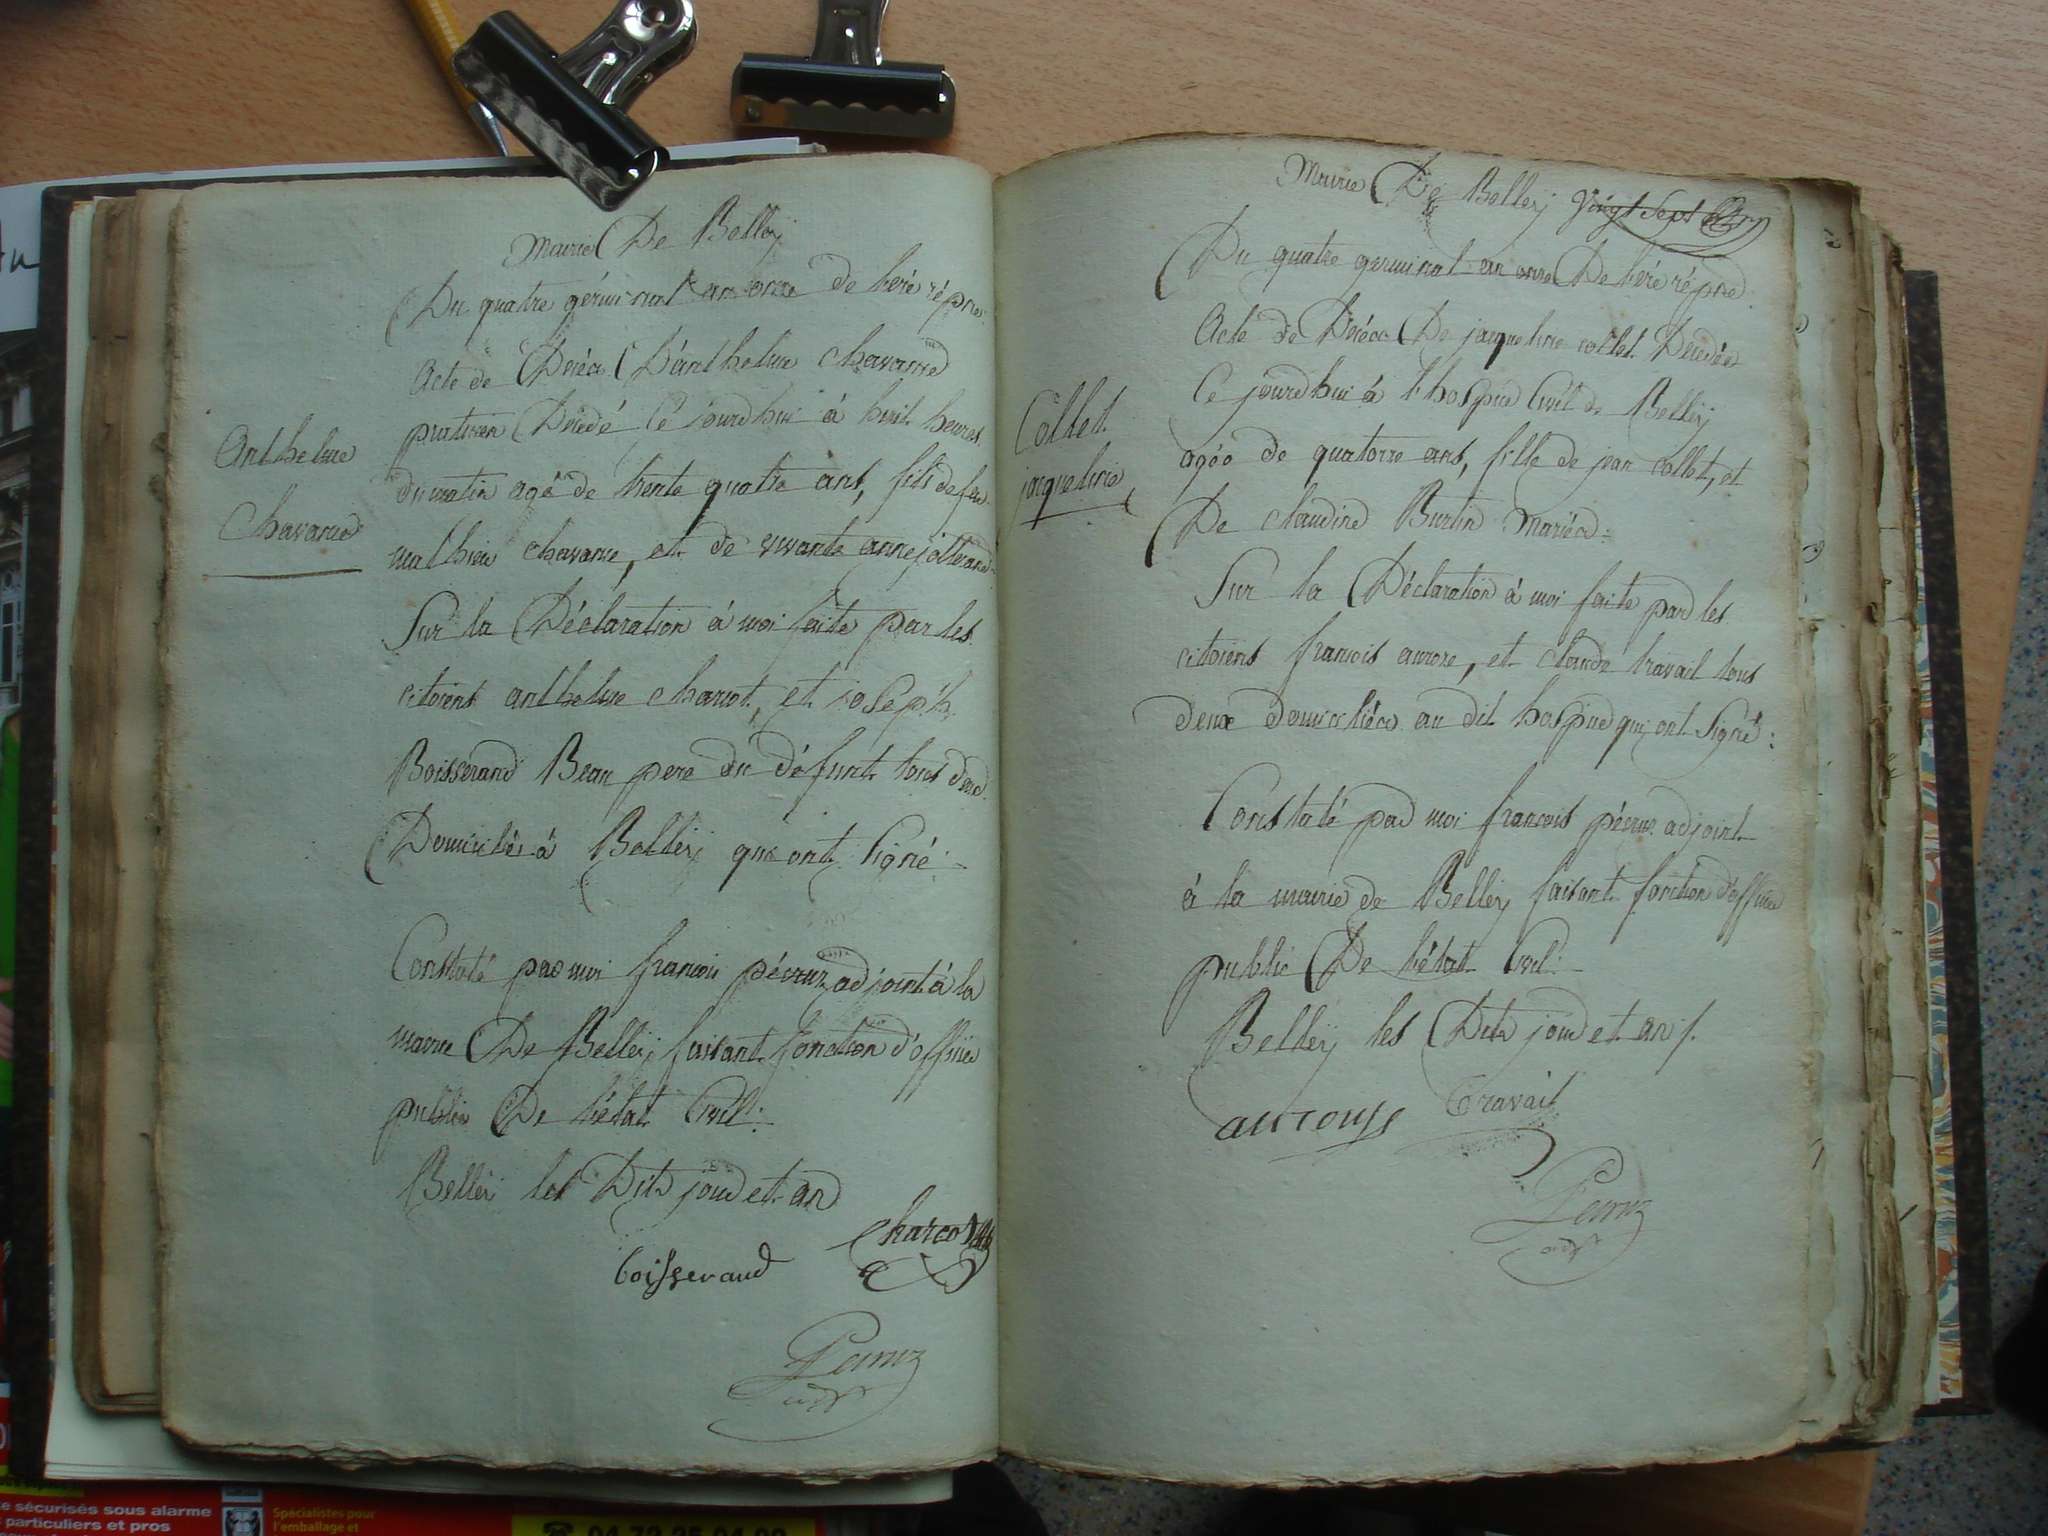 Mairie De Belleÿ
Du quatre gérminal an onze de l'ére répne
Acte de Décés D'anthelme Chavanne
praticien Décédé Ce jourdhui à huit heures
du matin agé de trente quatre ans, fils de feu
mathieu chavanne, et de vivante anne jolliand
Sur la Déclaration à moi faite par les
citoiens anthelme charcot, et joseph
Boisserand Beau pere du défunt tous deux
Domiciliés à Belleÿ qui ont signé :
Constaté par moi francois péyruz adjoint à la
mairie De Belleÿ faisant fonction d'officier
public De l'état Civil :
Belleÿ les Dits jour et an
charcot
boisserand
Anthelme
Chavanne
Mairie De Belleÿ Vingt Sept
Du quatre germinal an onze De l'ére répne
Acte de Décés De jacqueline collet Décédée
Ce jourdhui à l'hospice Civil de Belleÿ
agée de quatorze ans, fille de jean collet, et
De claudine Burtin mariés :
Sur la Déclaration à moi faite par les
citoiens francois aurore, et claude travail tous
deux domiciliés au dit hospice qui ont signé :
Constaté par moi francois péyruz adjoint
à la mairie de Belleÿ faisant fonction d'officier
public De l'état Civil :
Belleÿ les Dits jour et an /.
Travail
Collet
jacqueline
te sécurisés sous alarme
particuliers et pros
Spécialistes pour
l'emballage et